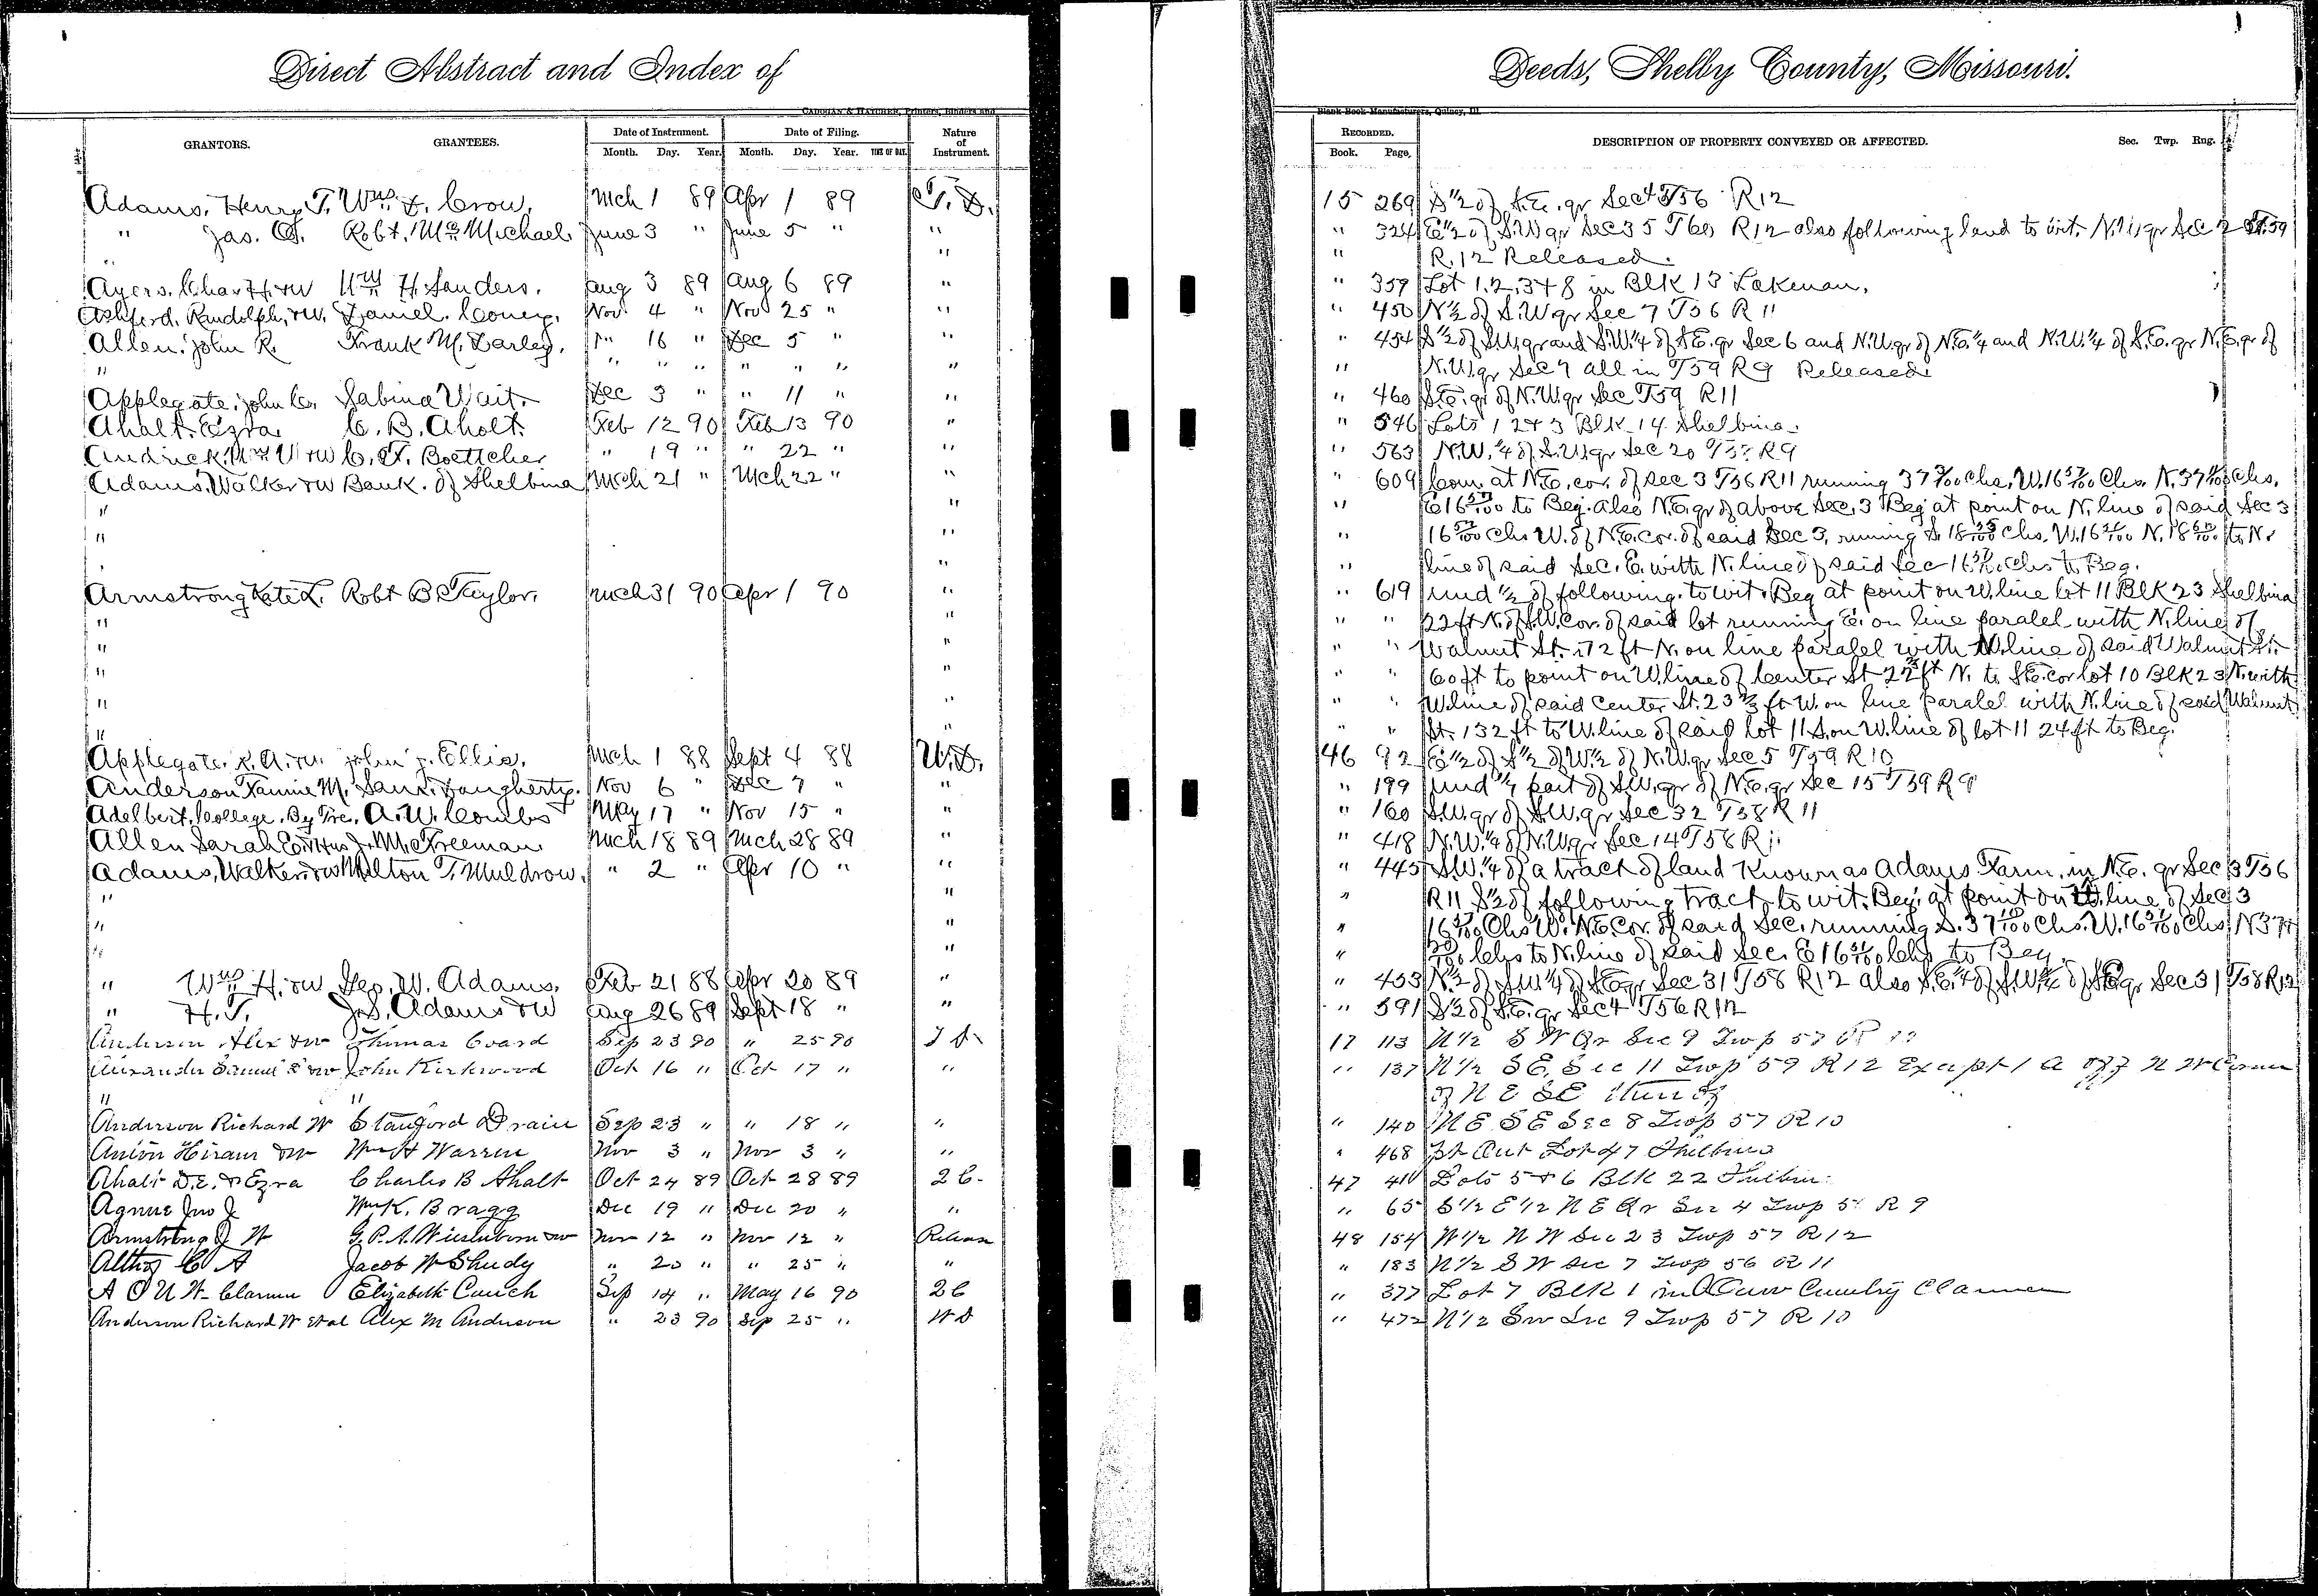 Direct Abstract and Index of
CADOGAN & HATCHER, Printers, Binders and
GRANTORS. GRANTEES. Date of Instrument. Date of Filing. Nature of Instrument.
Month. Day. Year. Month. Day. Year. TIME OF DAY.
Adams, Henry T. Wm. F. Crow. Mch 1 89 Apr 1 89 T. D.
" Jas. Robt. Mc Michael June 3 " June 5 " "
" "
Ayers. Chas H. &W Wm H. Sanders. Aug 3 89 Aug 6 89 "
Ashferd. Randolph, &W. Daniel. Nov. 4 " Nov 25 " "
Allen. John R. Frank M. Darley. " 16 " Dec 5 " "
" " " " " " " "
Applegate. John C. Sabina Wait. Dec 3 " " 11 " "
Ahalt. Ezra C. B. Aholt. Feb 12 90 Feb 13 90 "
&W C. F. Boettcher " 19 " " 22 " "
Adams, Walker &W Bank. of Shelbina Mch 21 " Mch 22 " "
" "
" "
"
Armstrong Kate L. Robt B. Taylor. Mch 31 90 Apr 1 90 "
" "
" "
" "
" "
"
Applegate. K. A. &W. John J. Ellis. Mch 1 88 Sept 4 88 W.D.
Anderson Fannie M. Daugherty. Nov 6 " Dec 7 " "
Adelbert. College. By Tre. A. W. Combs May 17 " Nov 15 " "
Allen Sarah E. & Hus J. M. Freeman Mch 18 89 Mch 28 89 "
Adams, Walker &W Milton T. Muldrow. " 2 " Apr 10 " "
" "
" "
" "
" Wm H. &W Geo. W. Adams. Feb 21 88 Apr 20 89 "
" H. T. J. S. Adams &W Aug 26 89 Sept 18 " "
Anderson Alex &W Thomas Coard Sep 23 90 " 25 90
Alexander Samuel &W John Kirkwood Oct 16 " Oct 17 " "
" "
Anderson Richard W Stanford Drain Sep 23 " " 18 " "
Anion Hiram &W Wm H Warren Nov 3 " Nov 3 " "
Ahalt D.E. & Ezra Charles B Ahalt Oct 24 89 Oct 28 89 2 C.
Agnue Jno J Wm K. Bragg Dec 19 " Dec 20 " "
Armstrong J W G. P. A. &W Nov 12 " Nov 12 " Release
C A Jacob W Shudy " 20 " " 25 " "
A O U W Clarence Elizabeth Couch Sep 14 " May 16 90 2 C
Anderson Richard W et al Alex M Anderson " 23 90 Sep 25 " W D
Deeds, Shelby County, Missouri.
Blank Book Manufacturers, Quincy, Ill.
RECORDED. DESCRIPTION OF PROPERTY CONVEYED OR AFFECTED. Sec. Twp. Rng.
Book. Page.
15 269 S 1/2 of S.E. qr Sec 4 T56 R12
" 324 E 1/2 of S.W qr Sec 35 T60 R12 also following land to wit. N.W qr Sec 2 T.59
" R.12 Released.
" 359 Lot 1. 2. 3 & 8 in Blk 13 Lakenan.
" 450 N 1/2 of S.W qr Sec 7 T56 R 11
" 454 S 1/2 of S.W. qr and S.W. 1/4 of S.E. qr Sec 6 and N.W. qr of N.E. 1/4 and N.W. 1/4 of S.E. qr N.E. qr of
" N.W. qr Sec 7 all in T59 R9 Released
" 460 S.E. qr of N.W. qr Sec T59 R11
" 546 Lots 1 2 & 3 Blk 14 Shelbina.
" 563 N.W. 1/4 of S.W. qr Sec 20 R9
" 609 Com. at N.E. cor. of Sec 3 T56 R11 running 37 Chs. W. 16 57/100 Chs. N. 37 Chs.
" E 16 57/100 to Beg. also N.E. qr of above Sec. 3 Beg at point on N. line of said Sec 3
" 16 57/100 Chs W. of N.E. cor. of said Sec 3, runing S. 18 Chs. W. 16 N. 18 to N.
" line of said Sec. E. with N. line of said Sec 16 Chs to Beg.
" 619 und 1/2 of following. to wit. Beg at point on W. line lot 11 BLK 23 Shelbina
" " 22 ft N. of S.W. cor. of said lot running E. on line paralel with N. line of
" " Walnut St. 72 ft N. on line paralel with W. line of said Walnut St.
" " 60 ft to point on W. line of Center St 22 ft N. to S.E. cor lot 10 BLK 23 N. with
" " W. line of said Center St. 23 2/3 ft W. on line paralel with N. line of said Walnut
" " St. 132 ft to W. line of said lot 11 S. on W. line of lot 11 24 ft to Beg.
46 92 E 1/2 of S 1/2 of W 1/2 of N.W. qr Sec 5 T59 R10
" 199 und 1/7 part of S.W. qr of N.E. qr Sec 15 T59 R9
" 160 S.W. qr of S.W. qr Sec 32 T58 R 11
" 418 N.W. 1/4 of N.W. qr Sec 14 T58 R 11
" 445 S.W. 1/4 of a tract of land Known as Adams Farm, in N.E. qr Sec 3 T56
" R11 S 1/2 of following tract to wit. Beg. at point on line of Sec 3
" 16 57/100 Chs W. N.E. Cor. of said Sec. running S. 37 Chs. W. 16 Chs N 37
" Chs to N. line of said Sec. E 16 Chs to Beg.
" 453 N 1/2 of S.W 1/4 of S.E. qr Sec 31 T58 R12 also S.E. 1/4 of S.W 1/4 of S.E. qr Sec 31 T58 R12
" 591 S 1/2 of S.E. qr Sec 4 T56 R 12
17 113 N 1/2 S W Qr Sec 9 Twp 57 R
" 137 N 1/2 S E, Sec 11 Twp 59 R 12 Except 1 A off N W Corner
of N E S E thereof
" 140 N E S E Sec 8 Twp 57 R 10
" 468 Pt Out Lot 47 Shelbina
47 411 Lots 5 & 6 Blk 22 Shelbina
" 65 S 1/2 E 1/2 N E Qr Sec 4 Twp R 9
48 154 W 1/2 N W Sec 23 Twp 57 R 12
" 183 N 1/2 S W Sec 7 Twp 56 R 11
" 377 Lot 7 Blk 1 Clarence
" 472 N 1/2 Sw Sec 9 Twp 57 R 10